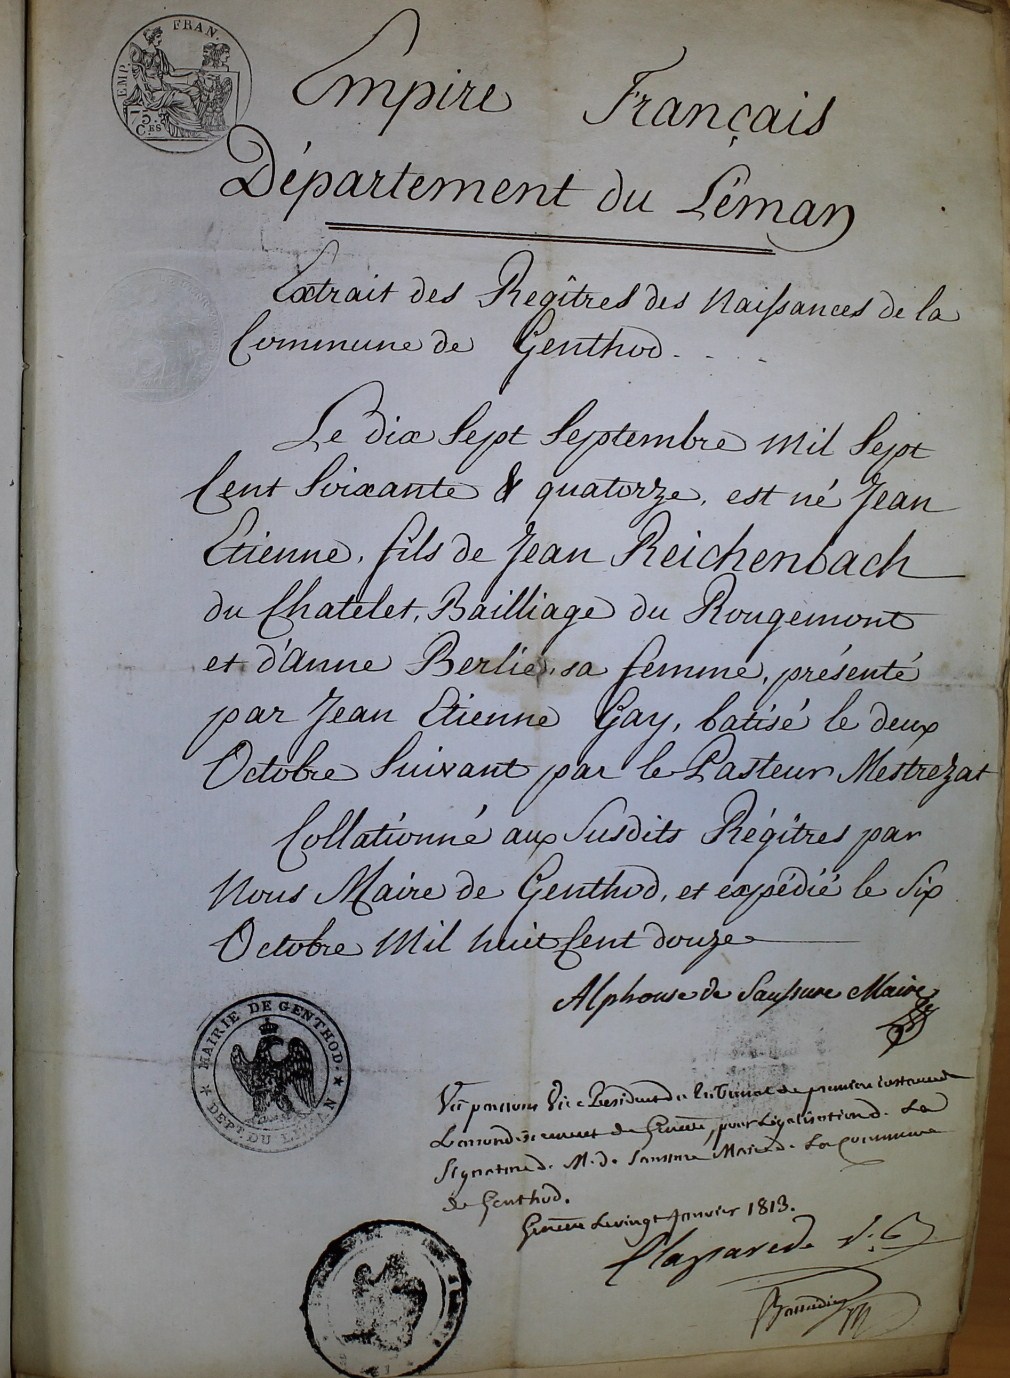 EMP. FRAN.
75. Ces
Empire Français
Département du Léman
Extrait des Regîtres des Naissances de la
Commune de Genthod.
Le dix Sept Septembre Mil Sept
Cent Soixante & quatorze, est né Jean
Etienne, fils de Jean Reichenbach
du Chatelet, Bailliage du Rougemont
et d'Anne Berlie, sa femme, présenté
par Jean Etienne Gay, batisé le deux
Octobre Suivant par le Pasteur Mestrezat
Collationné aux Susdits Régîtres par
Nous Maire de Genthod, et expédié le Six
Octobre Mil huit Cent douze
Alphonse de Saussure Maire
MAIRIE DE GENTHOD.
DEPT. DU LEMAN
Vu par nous Vice Président du tribunal de premiere instance de
L'arrondissement de Genève, pour légalisation de La
Signature de M. de Saussure Maire de La Commune
de Genthod.
Genève Le vingt Janvier 1813.
Claparede